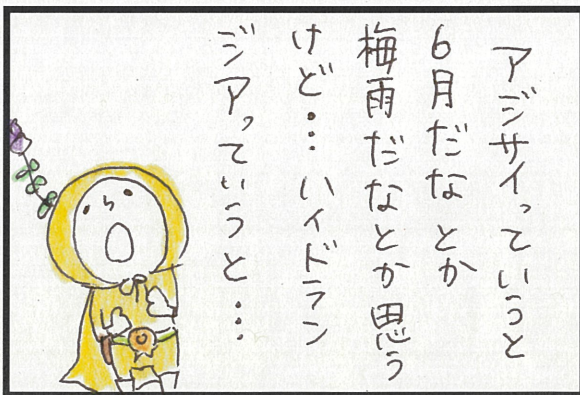 アジサイっていうと
6月だなとか
梅雨だなとか思う
けど…ハイドラン
ジアっていうと…